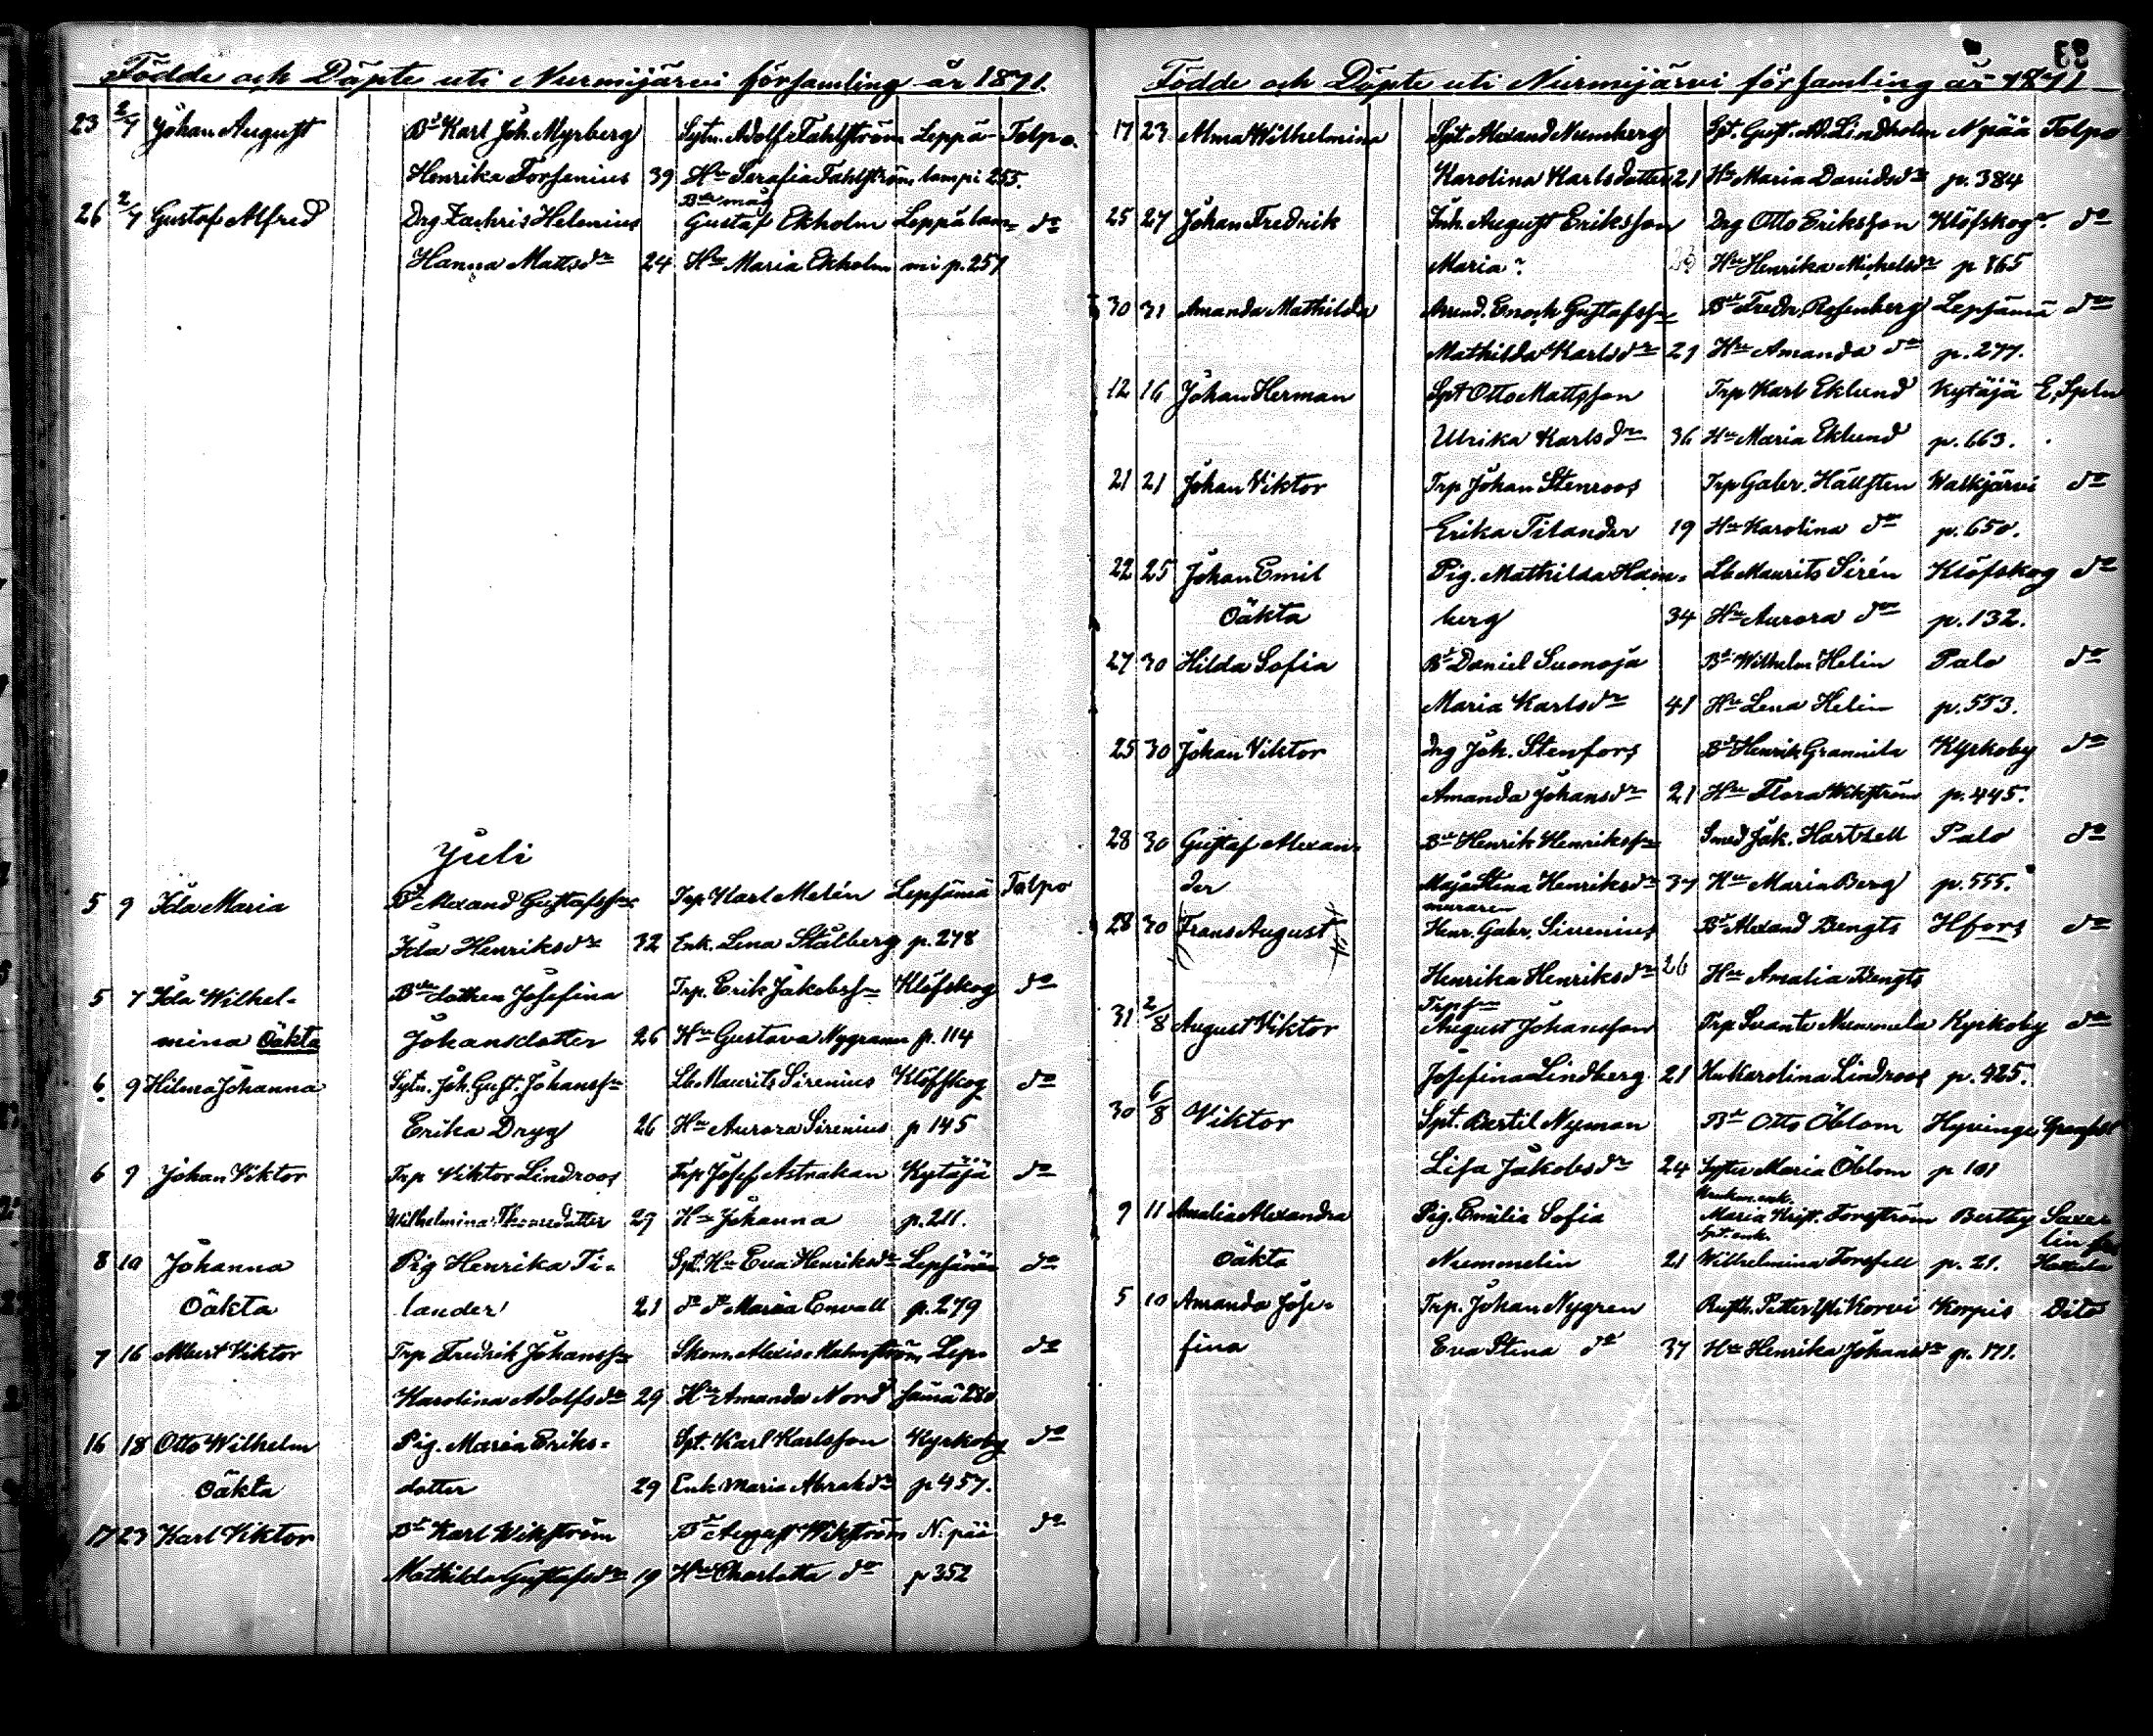 Födde och Döpte uti Nurmijärvi församling år 1871.
23 2/7 Johan August Bd Karl Joh. Myrberg Sytn. Adolf Fahlström Leppä- Tolpo.
Henrika Forsenius 39 Hu Serafia Fahlström lampi 255.
Bde måg
26 2/7 Gustaf Alfred Drg Zachris Helenius Gustaf Ekholm Leppälam- do
Hanna Mattsdr 24 Hu Maria Ekholm mi p. 257
Juli
5 9 Ida Maria Bd Alexand Gustafss Trp Karl Melén Lepsämä Tolpo
Ida Henriksdr 32 Enk. Lena Stålberg p. 278
5 7 Ida Wilhel- Bde dottren Josefina Trp. Erik Jakobss Klöfskog do
mina Oäkta Johansdotter 26 Hu Gustava Nygrann p. 114
6 9 Hilma Johanna Sytn. Joh. Gust. Johanss Lb. Maurits Sirenius Klöfskog do
Erika Dryg 26 Hu Aurora Sirenius p 145
6 9 Johan Viktor Trp Viktor Lindroos Trp Josef Astrakan Kytäjä do
Wilhelmina Thomsdotter 29 Hu Johanna p. 211.
8 10 Johanna Pig Henrika Ti- Spt. Hu Eva Henriksdr Lepsämä do
Oäkta lander 21 do do Maria Envall p. 279
7 16 Albert Viktor Trp Fredrik Johanss Skom. Alexis Malmström Lep- do
Karolina Adolfsdr 29 Hu Amanda Nord sämä 280
16 18 Otto Wilhelm Pig. Maria Eriks- Spt. Karl Karlsson Kyrkoby do
Oäkta dotter 29 Enk Maria Abrahdr p 457.
17 23 Karl Viktor Bd Karl Wikström Bd August Wikström N. pää do
Mathilda Gustafsdr 19 Hu Charlotta do p 352
Födde och Döpte uti Nurmijärvi församling år 1871
17 23 Alma Wilhelmina Spt. Alexand Numberg Spt. Gust. Ad. Lindholm N pää Tolpo
Karolina Karlsdotter 21 Hu Maria Davidsdr p. 384
25 27 Johan Fredrik Inh. August Eriksson Drg Otto Eriksson Klöfskog do
Maria Hu Henrika Michelsdr p 165
30 31 Amanda Mathilda Arrend. Enoch Gustafss Bd Fredr. Rosenberg Lepsämä do
Mathilda Karlsdr 21 Hu Amanda do p. 277.
12 16 Johan Herman Spt Otto Mattsson Trp Karl Eklund Kytäjä
Ulrika Karlsdr 36 Hu Maria Eklund p. 663.
21 21 Johan Viktor Trp Johan Stenroos Trp Gabr. Hällsten Waskjärvi do
Erika Tilander 19 Hu Karolina do p. 650.
22 25 Johan Emil Pig. Mathilda Holm- Lb Maurits Sirén Klöfskog do
Oäkta berg 34 Hu Aurora do p. 132.
27 30 Hilda Sofia Bd Daniel Suonoja Bd Wilhelm Helin Palo do
Maria Karlsdr 41 Hu Lena Helin p. 553.
25 30 Johan Viktor Drg Joh. Stenfors Bd Henrik Grannila Kyrkoby do
Amanda Johansdr 21 Hu Flora Wikström p. 445.
28 30 Gustaf Alexan- Bd Henrik Henrikss Smed Jak. Hartzell Palo do
der Maja Stina Henriksdr 37 Hu Maria Berg p. 555.
muraren
28 30 Frans August Henr. Gabr. Sirenius Bd Alexand Bengts Hfors do
Henrika Henriksdr 26 Hu Amalia Bengts
Trps
31 2/8 August Viktor August Johansson Trp Svante Nummela Kyrkoby do
Josefina Lindberg 21 Hu Karolina Lindroos p. 425.
30 6/8 Viktor Spt. Bertil Nyman Bd Otto Öblom Hyvinge
Lisa Jakobsdr 24 Syster Maria Öblom p 101
9 11 Amalia Alexandra Pig. Emilia Sofia Maria Krist. Forsström Bertby Saxe-
Spt. enk.
lin
Oäkta Nummelin 21 Wilhelmina Forsfell p. 21.
5 10 Amanda Jose- Trp. Johan Nygren Rusth. Petter Yli Korvi Korpis Dito
fina Eva Stina do 37 Hu Henrika Johansdr p. 171.